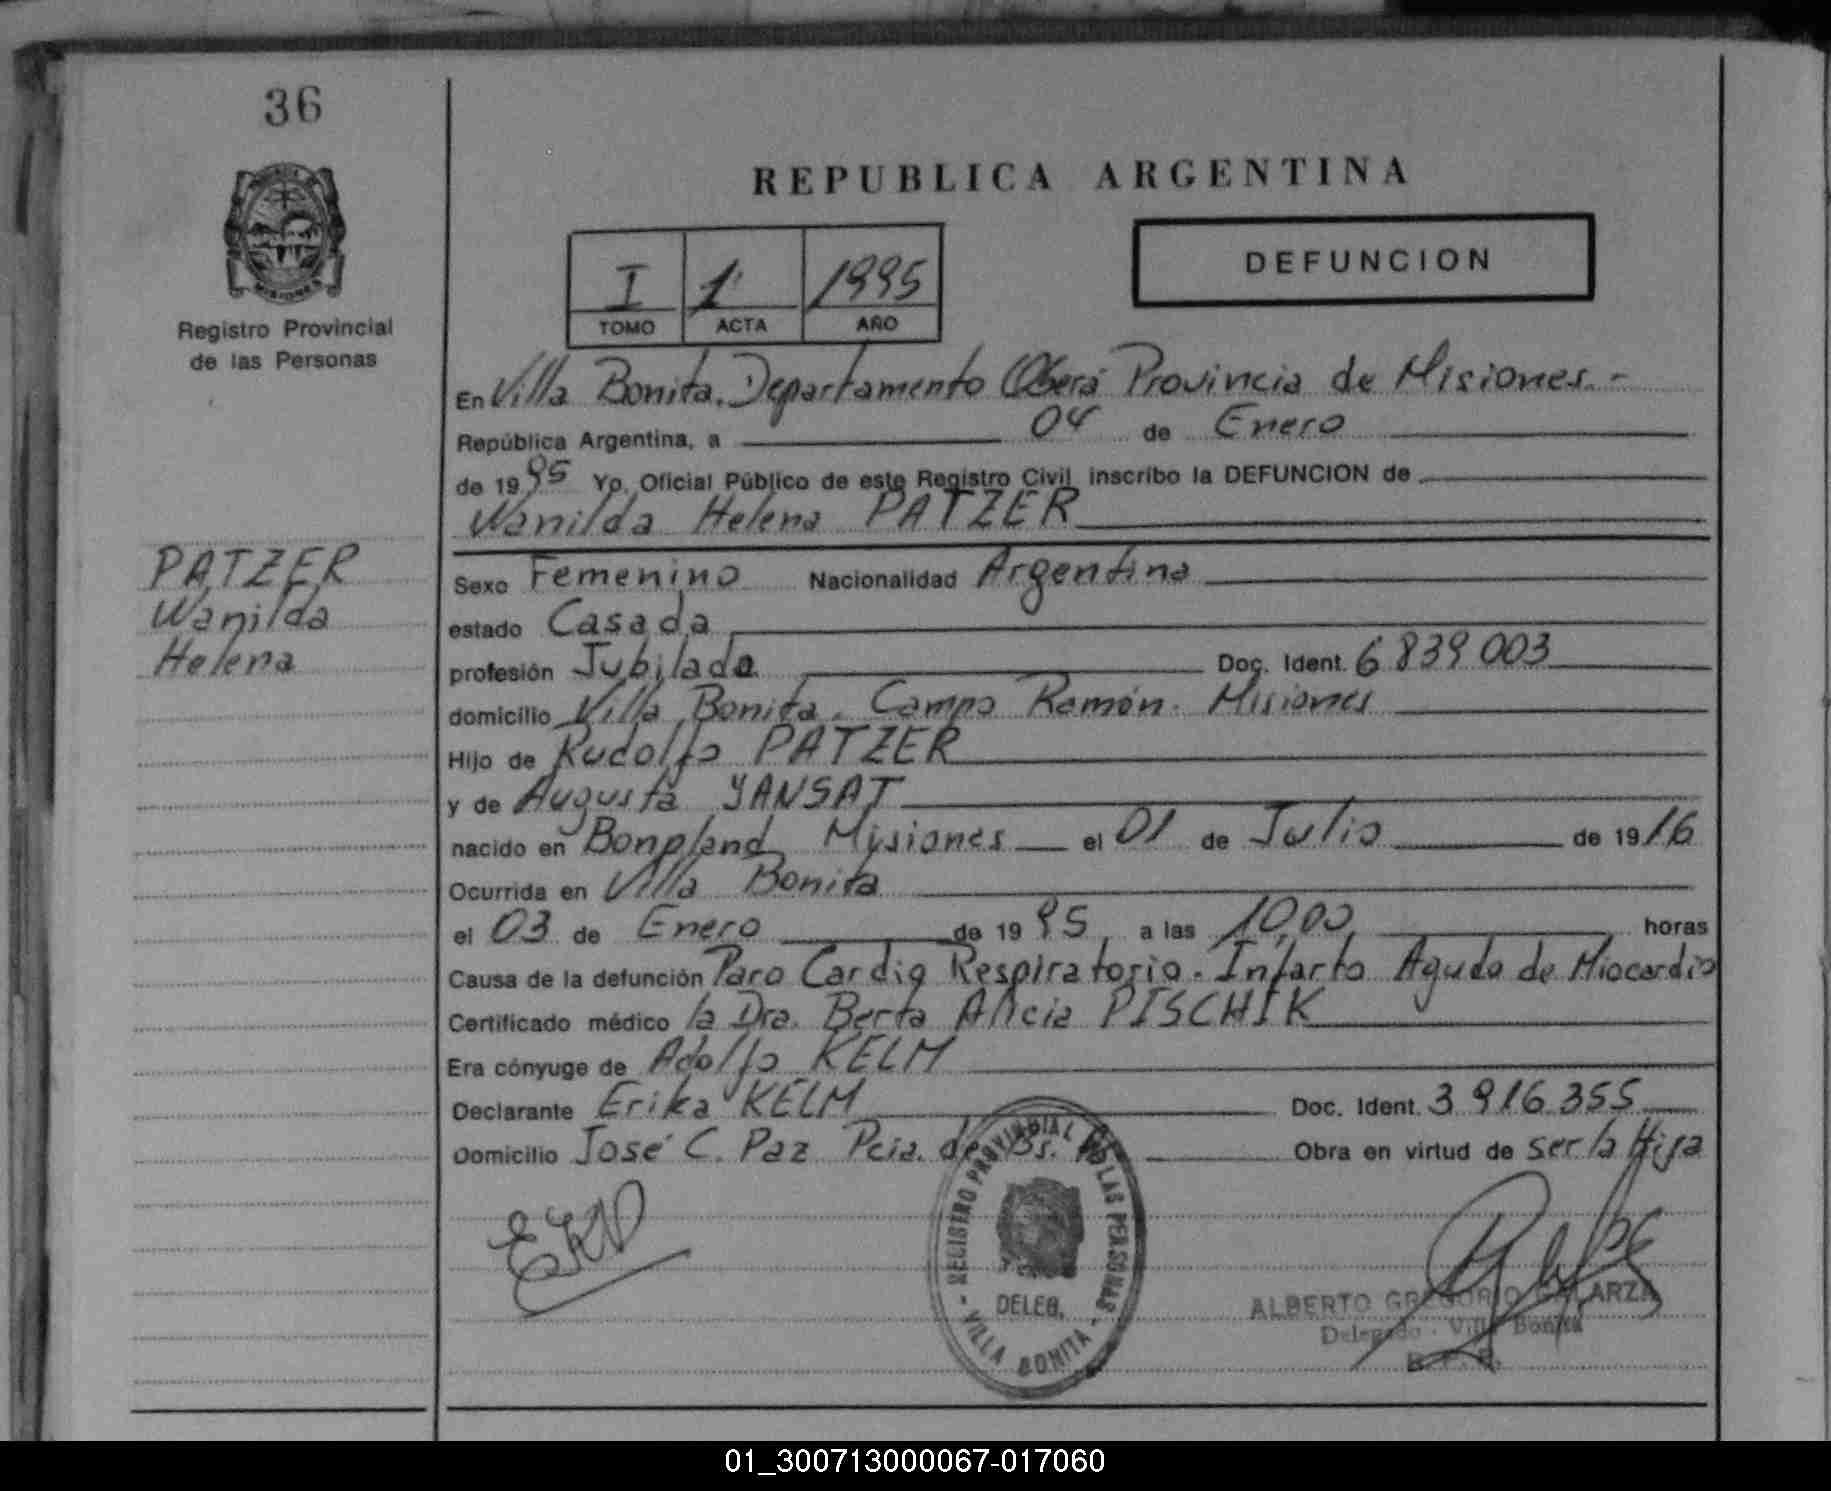 36
MISIONES
Registro Provincial
de las Personas
REPUBLICA ARGENTINA
I 1 1995
TOMO ACTA AÑO
DEFUNCION
En Villa Bonita. Departamento Oberá Provincia de Misiones.-
República Argentina, a 04 de Enero
de 1995 Yo, Oficial Público de este Registro Civil inscribo la DEFUNCION de
Wanilda Helena PATZER
PATZER
Wanilda
Helena
Sexo Femenino Nacionalidad Argentina
estado Casada
profesión Jubilada Doc. Ident. 6 839 003
domicilio Villa Bonita. Campo Ramón. Misiones
Hijo de Rudolfo PATZER
y de Augusta YANSAT
nacido en Bonpland Misiones el 01 de Julio de 1916
Ocurrida en Villa Bonita
el 03 de Enero de 1995 a las 10,00 horas
Causa de la defunción Paro Cardio Respiratorio. Infarto Agudo de Miocardio
Certificado médico la Dra. Berta Alicia PISCHIK
Era cónyuge de Adolfo KELM
Declarante Erika KELM Doc. Ident. 3 916 355
Domicilio José C. Paz Pcia. de Bs. As. Obra en virtud de ser la Hija
REGISTRO PROVINCIAL DE LAS PERSONAS
DELEG.
- VILLA BONITA -
ALBERTO GREGORIO GALARZA
Delegado - Villa Bonita
R. P. P.
01_300713000067-017060